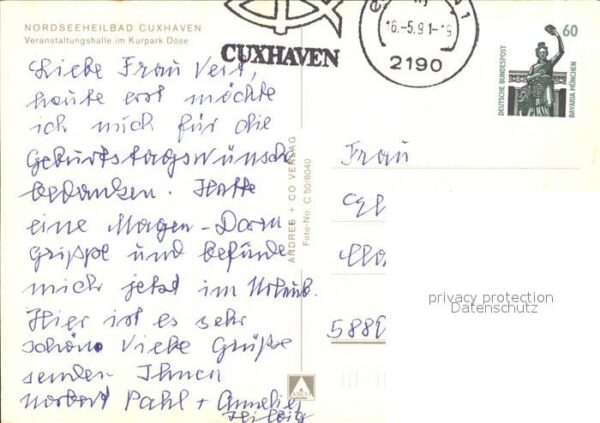 NORDSEEHEILBAD CUXHAVEN
Veranstaltungshalle im Kurpark Döse
Liebe Frau Veit,
heute erst möchte
ich mich für die
Geburtstagswünsche
bedanken. Hatte
eine Magen-Darm
Grippe und befinde
mich jetzt im Urlaub.
Hier ist es sehr
schön. Viele Grüße
senden Ihnen
Norbert Pahl + Annelies
CUXHAVEN
16.-5.91-19
2190
60
DEUTSCHE BUNDESPOST
BAVARIA MÜNCHEN
ANDRES + CO. VERLAG
Foto-No. C 50/8040
Frau
privacy protection
Datenschutz
588
ANCO